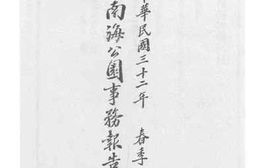 華民國三十二年　春季
南海公園事務報告